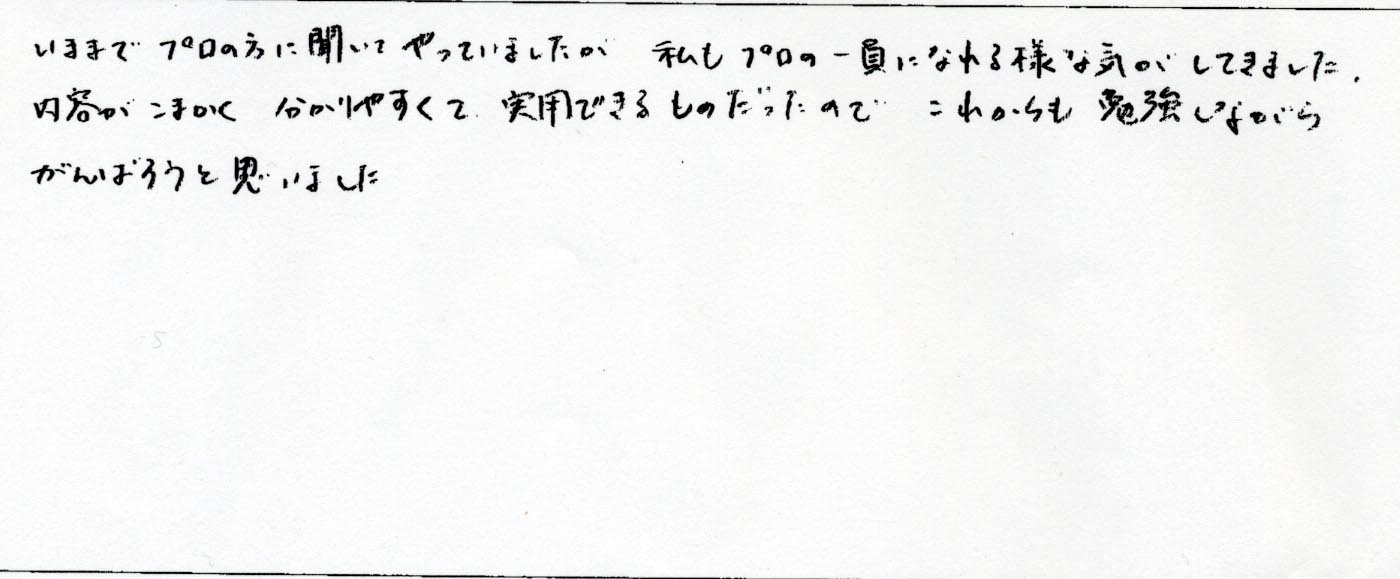 いままで プロの方に聞いてやっていましたが 私もプロの一員になれる様な気がしてきました.
内容がこまかく 分かりやすくて 実用できるものだったので これからも勉強しながら
がんばろうと思いました